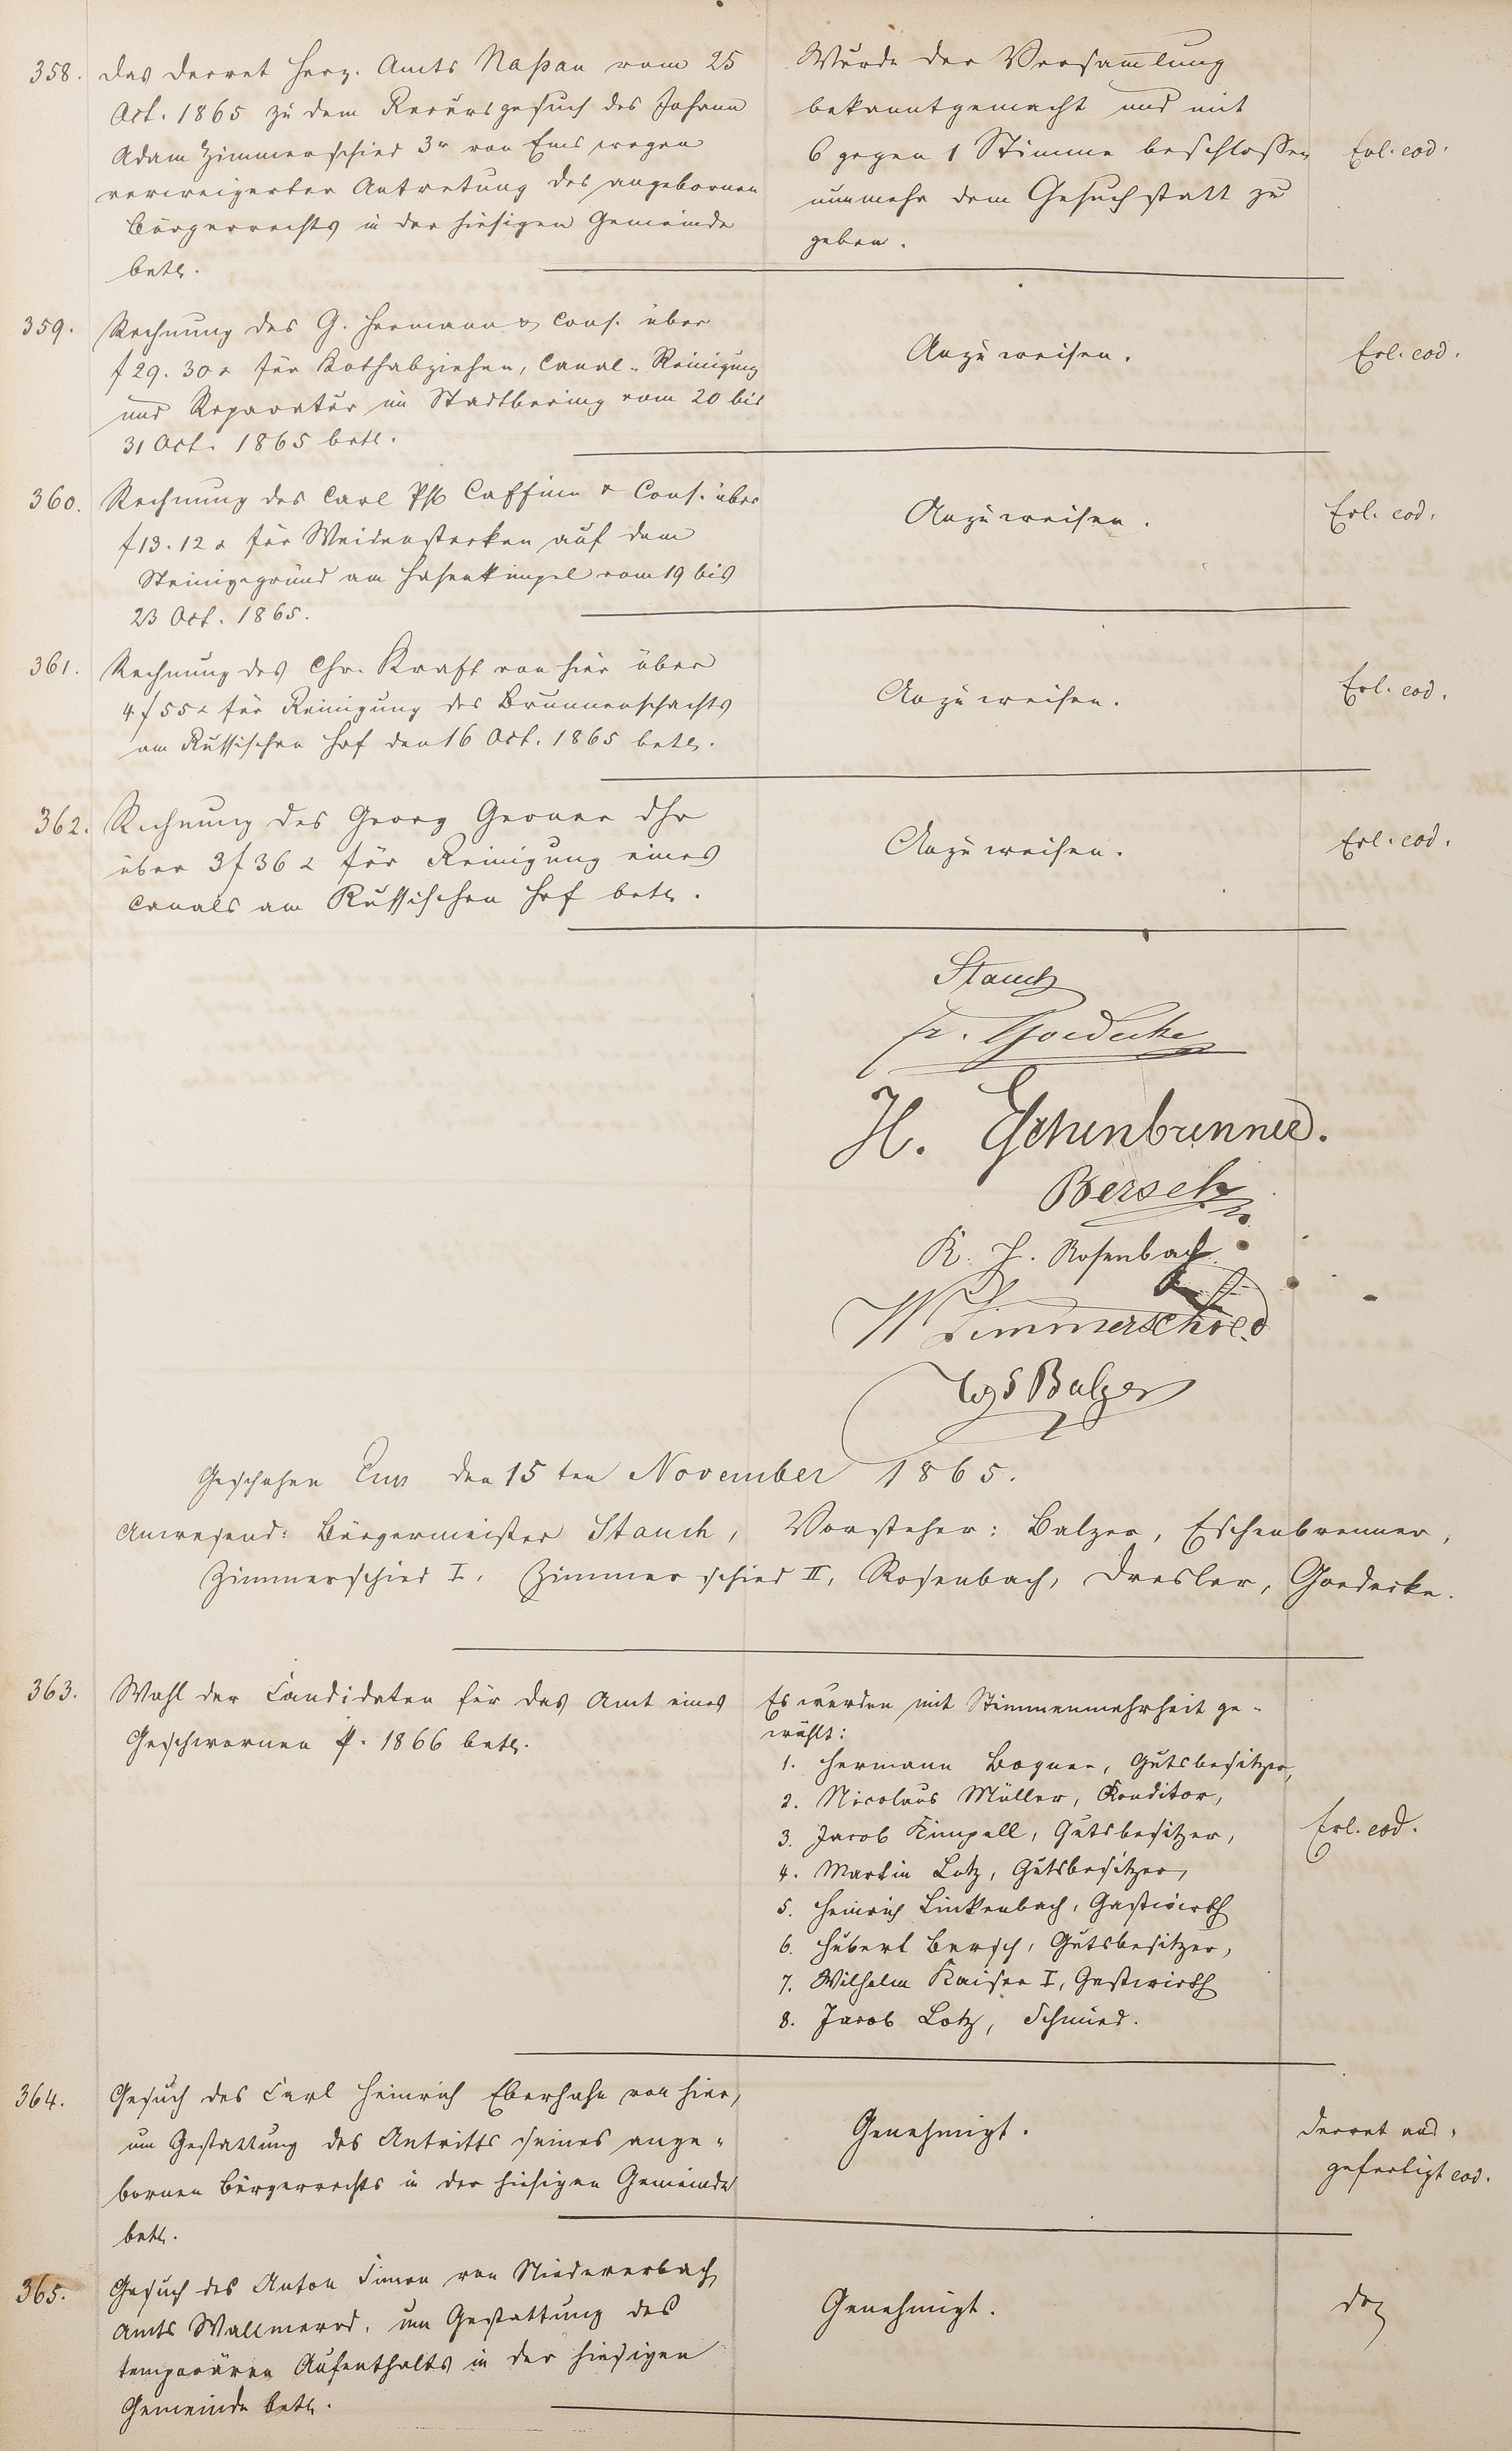 358. Das Decret Herz. Amts Naßau vom 25
Oct. 1865 zu dem Recursgesuch des Johann
Adam Zimmerschied 3r von Ems wegen
verweigerter Antretung des angebornen
Bürgerrechts in der hiesigen Gemeinde
betr.
Wurde der Versam̅lung
bekanntgemacht und mit
6 gegen 1 Stimme beschloßen
nunmehr dem Gesuch statt zu
geben.
Erl. eod.
359. Rechnung des G. Hermann & Cons. über
f 29. 30 x für Kothabziehen, Canal-Reinigung
und Reparatur im Stadtbering vom 20 bis
31 Oct. 1865 betr.
Anzuweisen.
Erl. eod.
360. Rechnung des Carl Ph Caffine & Cons. über
f 13. 12 x für Weidenstecken auf dem
Steinigegrund am Hasenkimpel vom 19 bis
23 Oct. 1865.
Anzuweisen.
Erl. eod.
361. Rechnung des Chr. Kraft von hier über
4 f 55 x für Reinigung des Brunnenschachts
am Russischen Hof den 16 Oct. 1865 betr.
Anzuweisen.
Erl. eod.
362. Rechnung des Georg Geoner dhr
über 3 f 36 x für Reinigung eines
Canals am Russischen Hof betr.
Anzuweisen.
Erl. eod.
Stauch
Fr. Goedecke
H. Eschenbrenner.
Bersch
K. H. Rosenbach
W Zimmerschied
Balzer
Geschehen Ems den 15ten November 1865.
Anwesend: Bürgermeister Stauch, Vorsteher: Balzer, Eschenbrenner,
Zimmerschied I, Zimmerschied II, Rosenbach, Dresler, Goedecke.
363. Wahl der Candidaten für das Amt eines
Geschwornen p. 1866 betr.
Es wurden mit Stimmenmehrheit ge-
wählt:
1. Hermann Bogner, Gutsbesitzer,
2. Nicolaus Müller, Konditor,
3. Jacob Kimpell, Gutsbesitzer,
4. Martin Lotz, Gutsbesitzer,
5. Heinrich Linkenbach, Gastwirth
6. Hubert Bersch, Gutsbesitzer,
7. Wilhelm Kaiser I, Gastwirth
8. Jacob Lotz, Schmied.
Erl. eod.
364. Gesuch des Carl Heinrich Eberhahn von hier,
um Gestattung des Antritts seines ange-
bornen Bürgerrechts in der hiesigen Gemeinde
betr.
Genehmigt.
Decret aus-
gefertigt eod.
365. Gesuch des Anton Simon von Niedererbach
Amts Wallmerod, um Gestattung des
temporären Aufenthalts in der hiesigen
Gemeinde betr.
Genehmigt.
do